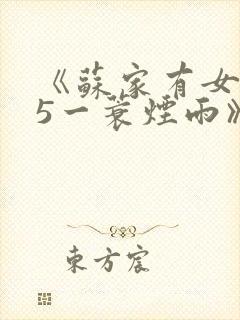 《蘇家有女
5一蓑煙雨》
東方宸